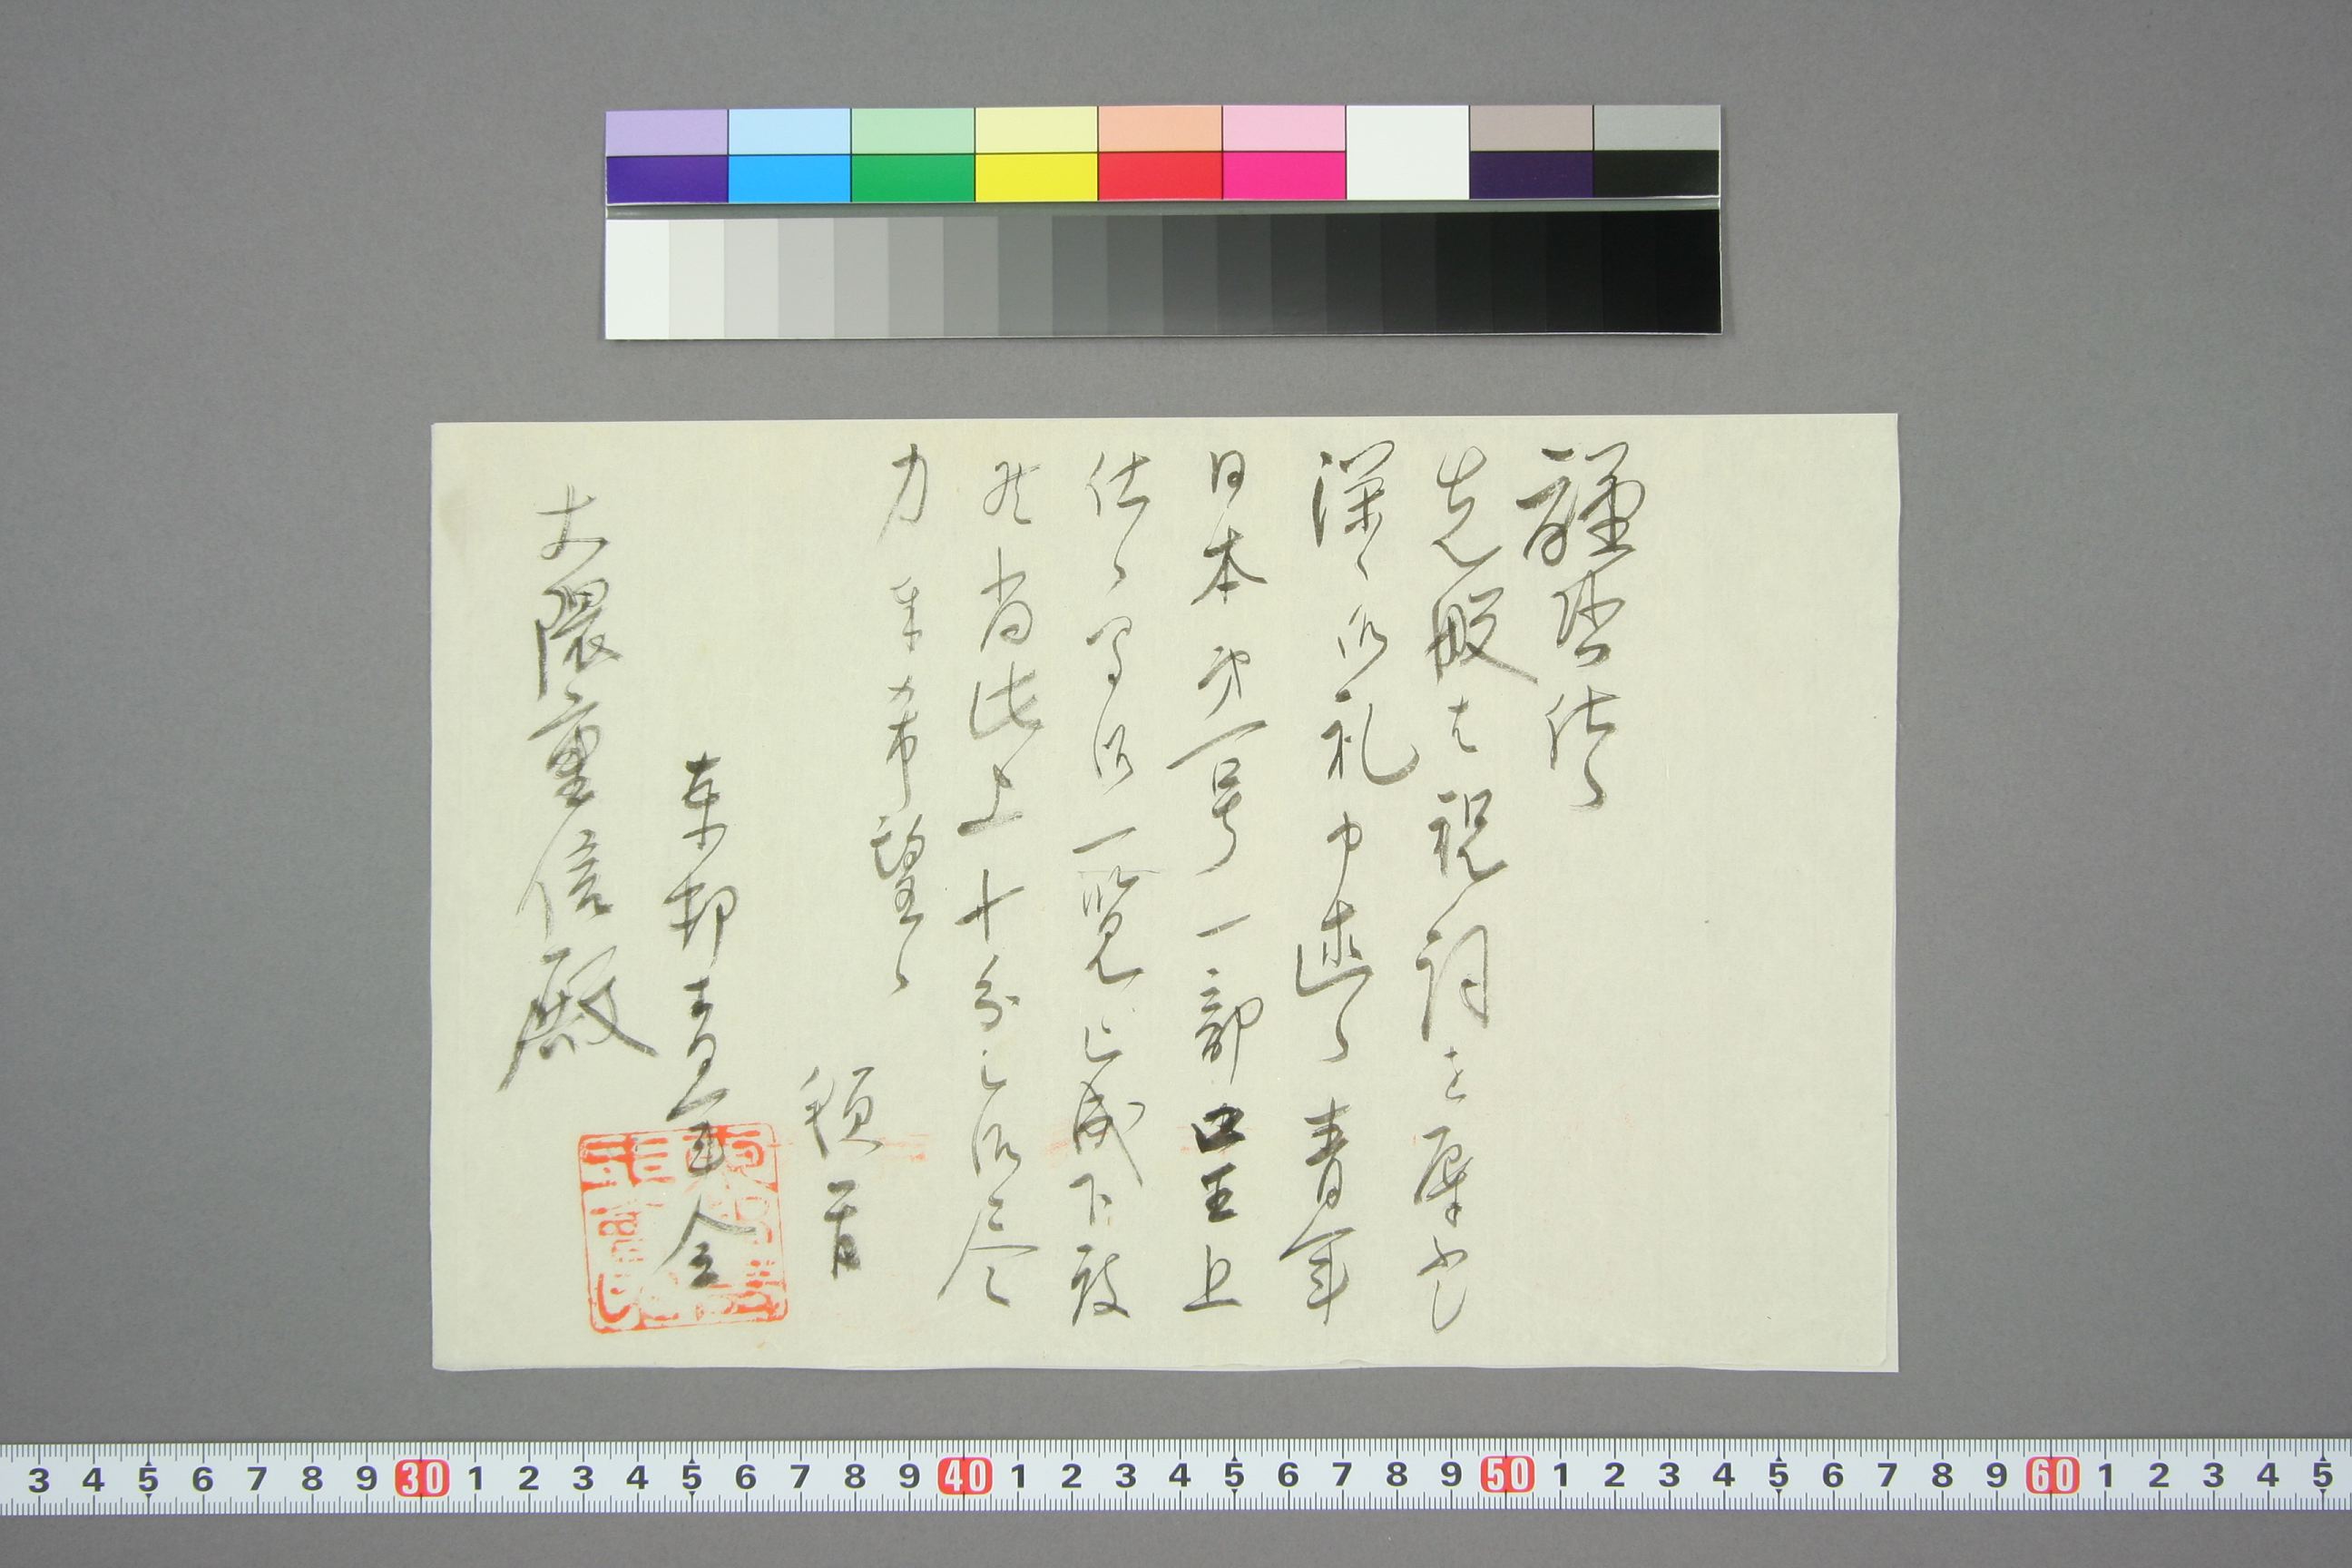 謹啓仕候
先般は祝詞を辱ふし
深く御礼申述候青年
日本第一号一部口呈上
仕候間御一覧被成下度
然尚此上十分之御尽
力奉希望候
頓首
東邦青年会
大隈重信殿
3 4 5 6 7 8 9 30 1 2 3 4 5 6 7 8 9 40 1 2 3 4 5 6 7 8 9 50 1 2 3 4 5 6 7 8 9 60 1 2 3 4 5